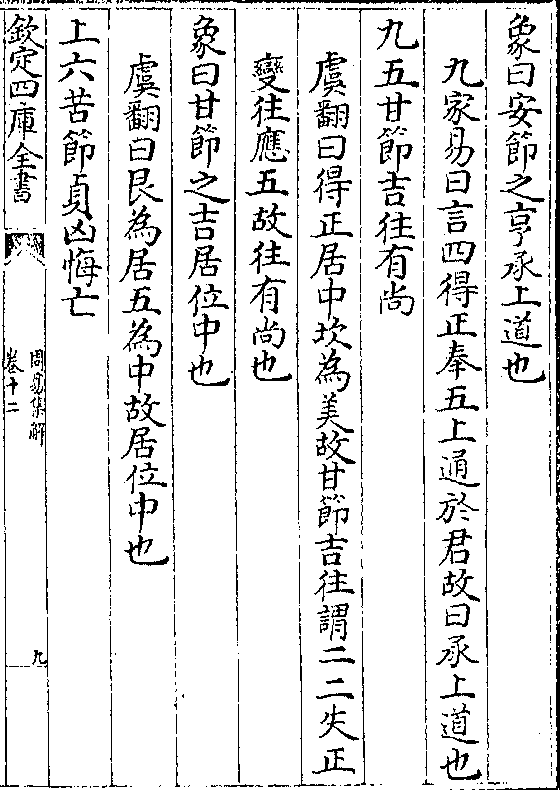 象曰安節之亨承上道也
九家易曰言四得正奉五上通於君故曰承上道也
九五甘節吉往有尚
虞翻曰得正居中坎為美故甘節吉往謂二二失正
變往應五故往有尚也
象曰甘節之吉居位中也
虞翻曰艮為居五為中故居位中也
上六苦節貞凶悔亡
欽定四庫全書
周易集解
卷十二
九